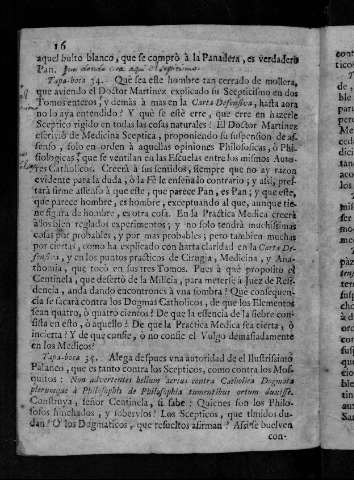 16
aquel bulto blanco, que se comprò à la Panadera, es verdadero
Pan.
Tapa-boca 34. Què sea este hombre tan cerrado de mollera,
que aviendo el Doctor Martinez explicado su Scepticismo en dos
Tomos enteros, y demàs à mas en la Carta Defensiva, hasta aora
no lo aya entendido! Y què se estè erre, que erre en hazerle
Sceptico rigido en todas las cosas naturales! El Doctor Martinez
escriviò de Medicina Sceptica, proponiendo su suspension de as-
senso, solo en orden à aquellas opiniones Philosoficas, ò Phi-
siologicas, que se ventilan en las Escuelas entre los mismos Auto-
res Catholicos. Creerà à sus sentidos, siempre que no ay razon
evidente para la duda, ò la Fè le enseña lo contrario; y assi, pres-
tarà firme assenso à que este, que parece Pan, es Pan; y que este,
que parece hombre, es hombre, exceptuando al que, aunque tie-
ne figura de hombre, es otra cosa. En la Practica Medica creerà
à los bien reglados experimentos; y no solo tendrà muchissimas
cosas por probables, y por mas probables; pero tambien muchas
por ciertas, como ha explicado con harta claridad en la Carta De-
fensiva, y en los puntos practicos de Cirugia, Medicina, y Ana-
thomia, que tocò en sus tres Tomos. Pues à què proposito el
Centinela, que desertò de la Milicia, para meterse à Juez de Resi-
dencia, anda dando encontrones à una sombra? Que consequen-
cia se sacarà contra los Dogmas Catholicos, de que los Elementos
sean quatro, ò quatro cientos? De que la essencia de la fiebre con-
sista en esto, ò aquello? De que la Practica Medica sea cierta, ò
incierta? Y de que conste, ò no conste el Vulgo demasiadamente
en los Medicos?
Tapa-boca 35. Alega despues vna autoridad de el Ilustrissimo
Palanco, que es tanto contra los Scepticos, como contra los Mos-
quitos: Non advertentes bellum acrius contra Catholica Dogmata
plerumque à Philosophis de Philosophia tumentibus ortum duxisse.
Construya, señor Centinela, si sabe: Quienes son los Philo-
sofos hinchados, y sobervios? Los Scepticos, que timidos du-
dan? O los Dogmaticos, que resueltos afirman? Assi se buelven
con-